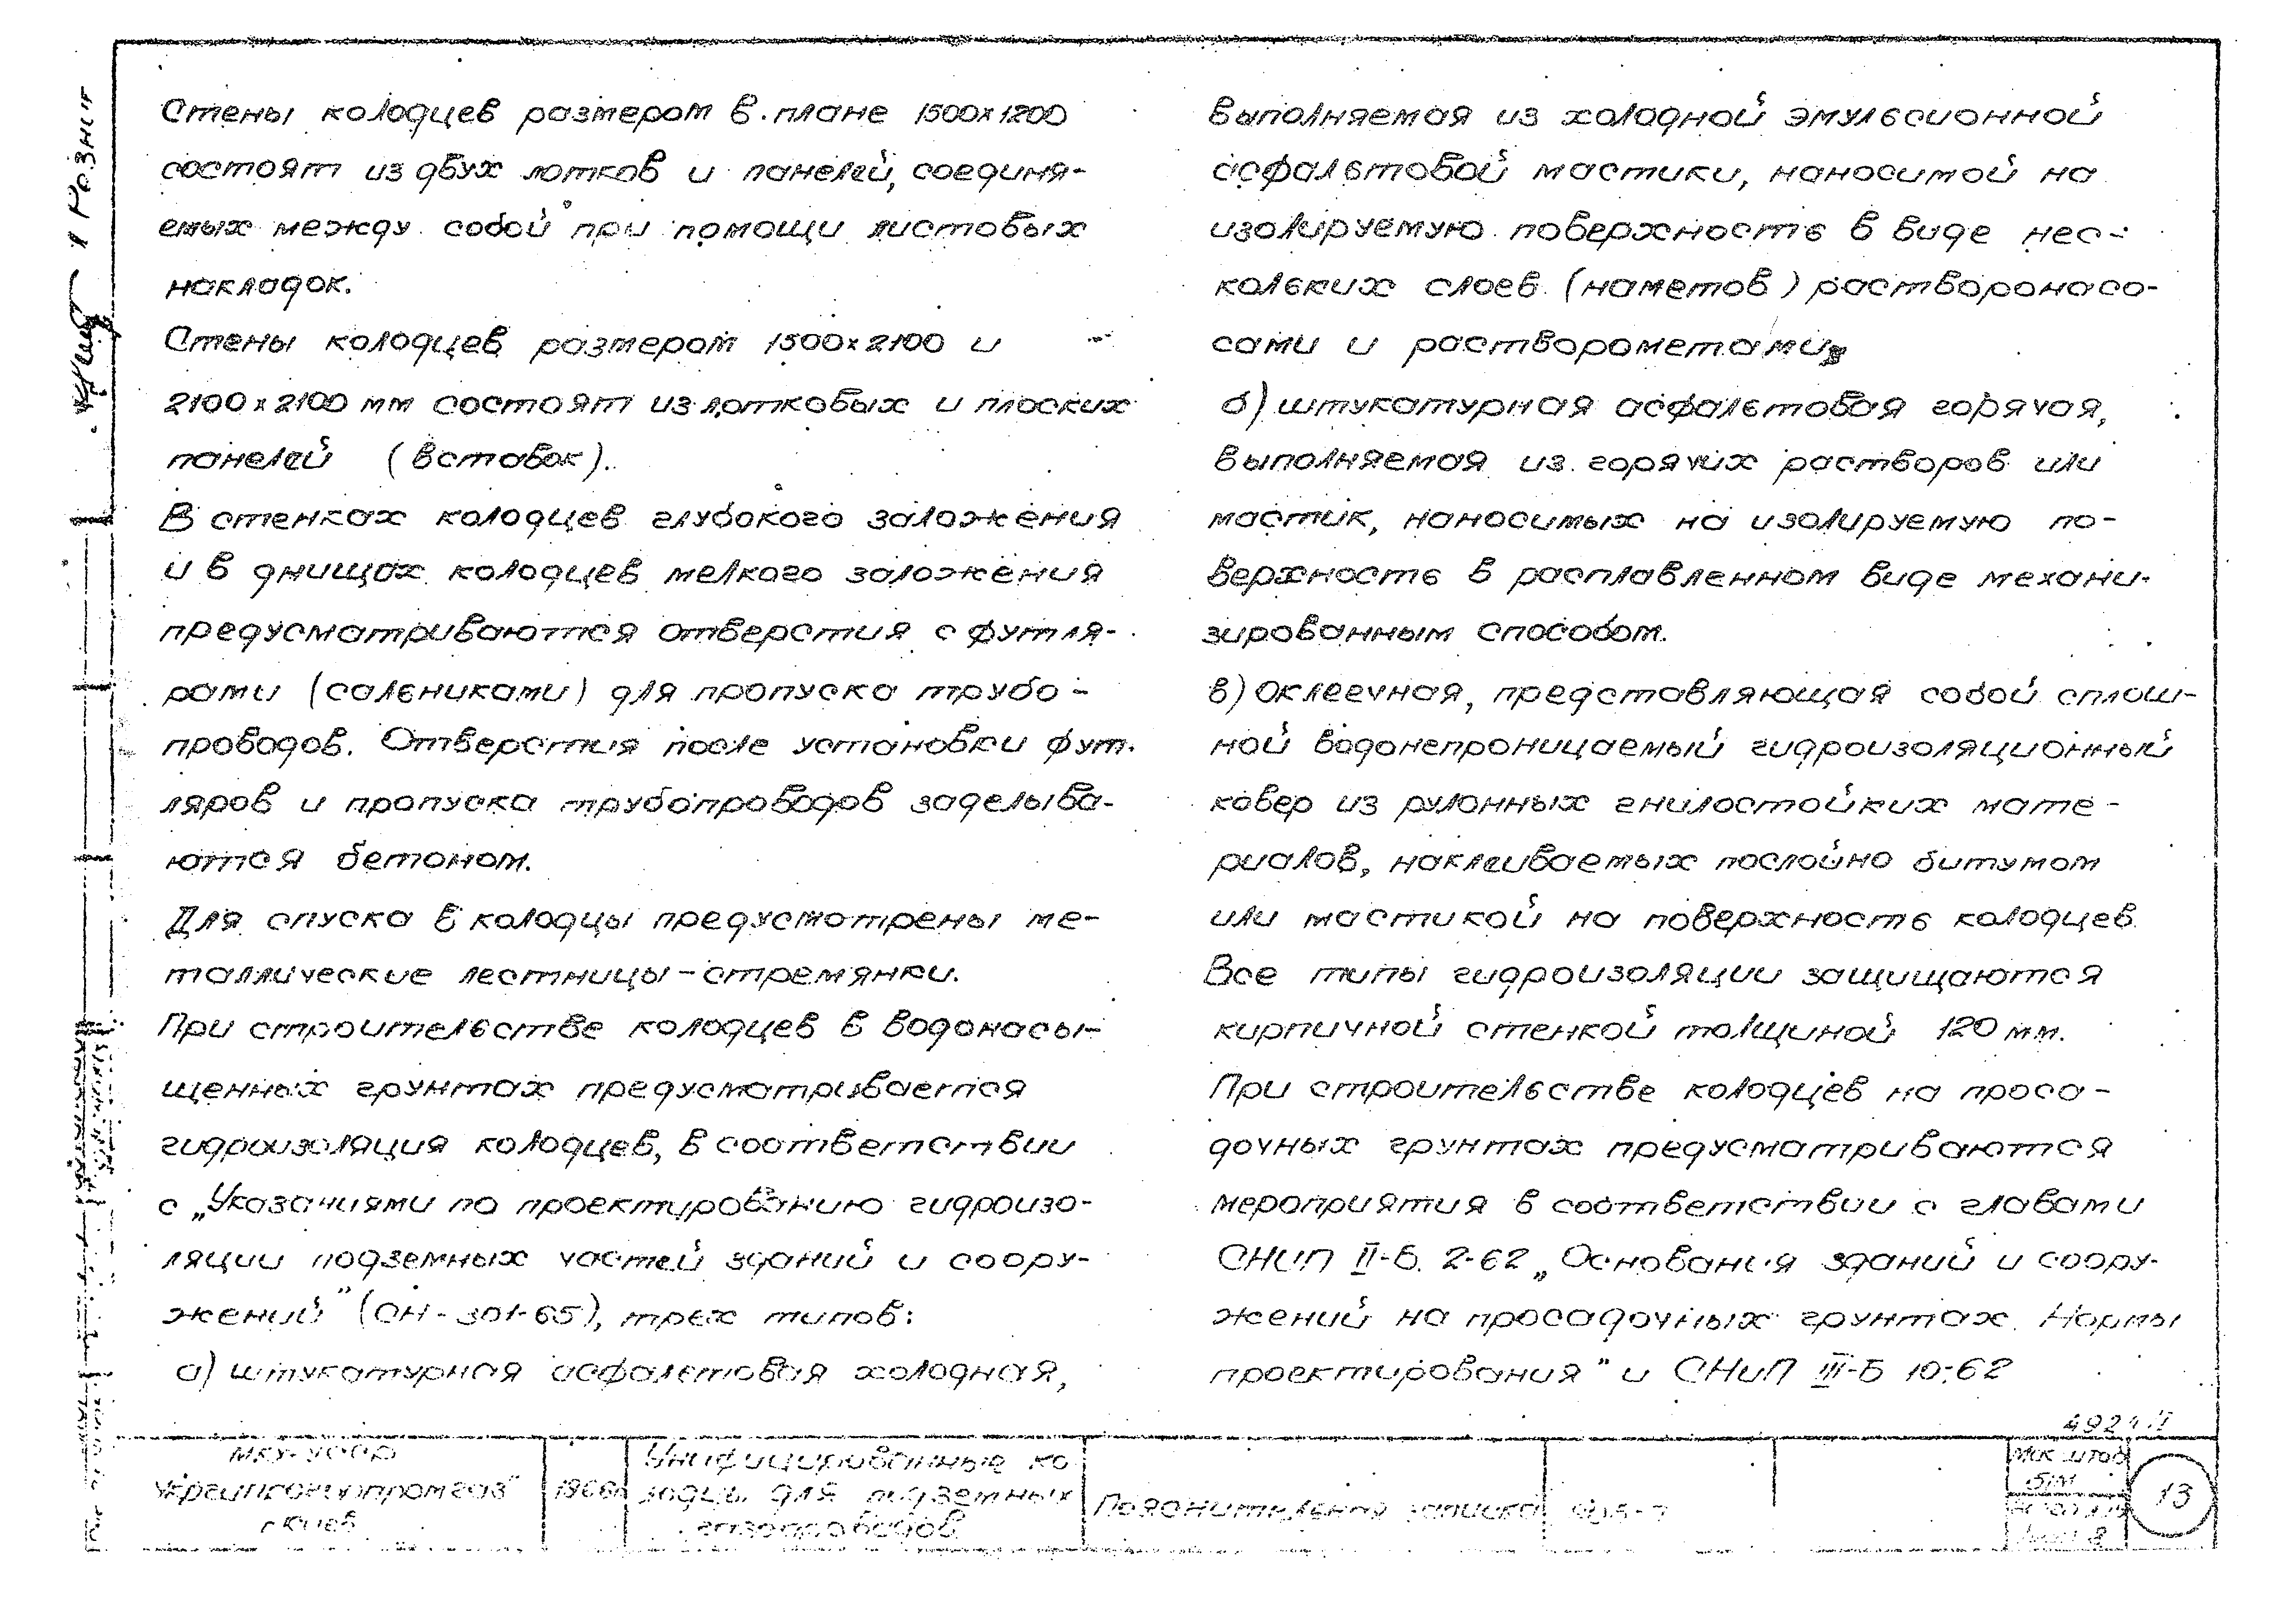 Стены колодцев размером в плане 1500х1200
состоят из двух лотков и панелей, соединя-
емых между собой при помощи листовых
накладок.
Стены колодцев размером 1500х2100 и
2100х2100 мм состоят из лотковых и плоских
панелей (вставок).
В стенках колодцев глубокого заложения
и в днищах колодцев мелкого заложения
предусматриваются отверстия с футля-
рами (сальниками) для пропуска трубо-
проводов. Отверстия после установки фут-
ляров и пропуска трубопроводов заделыва-
ются бетоном.
Для спуска в колодцы предусмотрены ме-
таллические лестницы-стремянки.
При строительстве колодцев в водонасы-
щенных грунтах предусматривается
гидроизоляция колодцев, в соответствии
с „Указаниями по проектированию гидроизо-
ляции подземных частей зданий и соору-
жений" (СН-301-65), трех типов:
а) штукатурная асфальтовая холодная,
выполняемая из холодной эмульсионной
асфальтовой мастики, наносимой на
изолируемую поверхность в виде нес-
кольких слоев (наметов) растворонасо-
сами и растворометами;
б) штукатурная асфальтовая горячая,
выполняемая из горячих растворов или
мастик, наносимых на изолируемую по-
верхность в расплавленном виде механи-
зированным способом.
в) Оклеечная, представляющая собой сплош-
ной водонепроницаемый гидроизоляционный
ковер из рулонных гнилостойких мате-
риалов, наклеиваемых послойно битумом
или мастикой на поверхность колодцев.
Все типы гидроизоляции защищаются
кирпичной стенкой толщиной 120 мм.
При строительстве колодцев на проса-
дочных грунтах предусматриваются
мероприятия в соответствии с главами
СНиП II-Б. 2-62 „Основания зданий и соору-
жений на просадочных грунтах. Нормы
проектирования" и СНиП III-Б 10-62
МКХ УССР
Укргипроинжпромгаз"
г Киев
Унифицированные ко
лодцы для подземных
газопроводов
Пояснительная записка
13